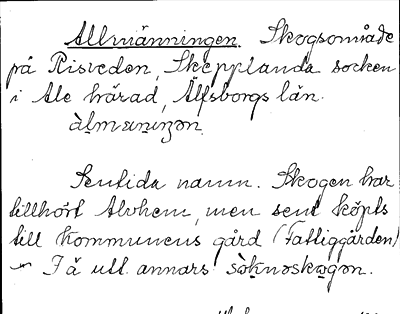 Allmänningen. Skogsområde
på Risveden, Skepplanda socken
i Ale härad, Älfsborgs län.
àlmæniŋən.
Sentida namn. Skogen har
tillhört Alvhem, men sent köpts
till kommunens gård (Fattiggården)
I ä utt. annars sòknəskogən.